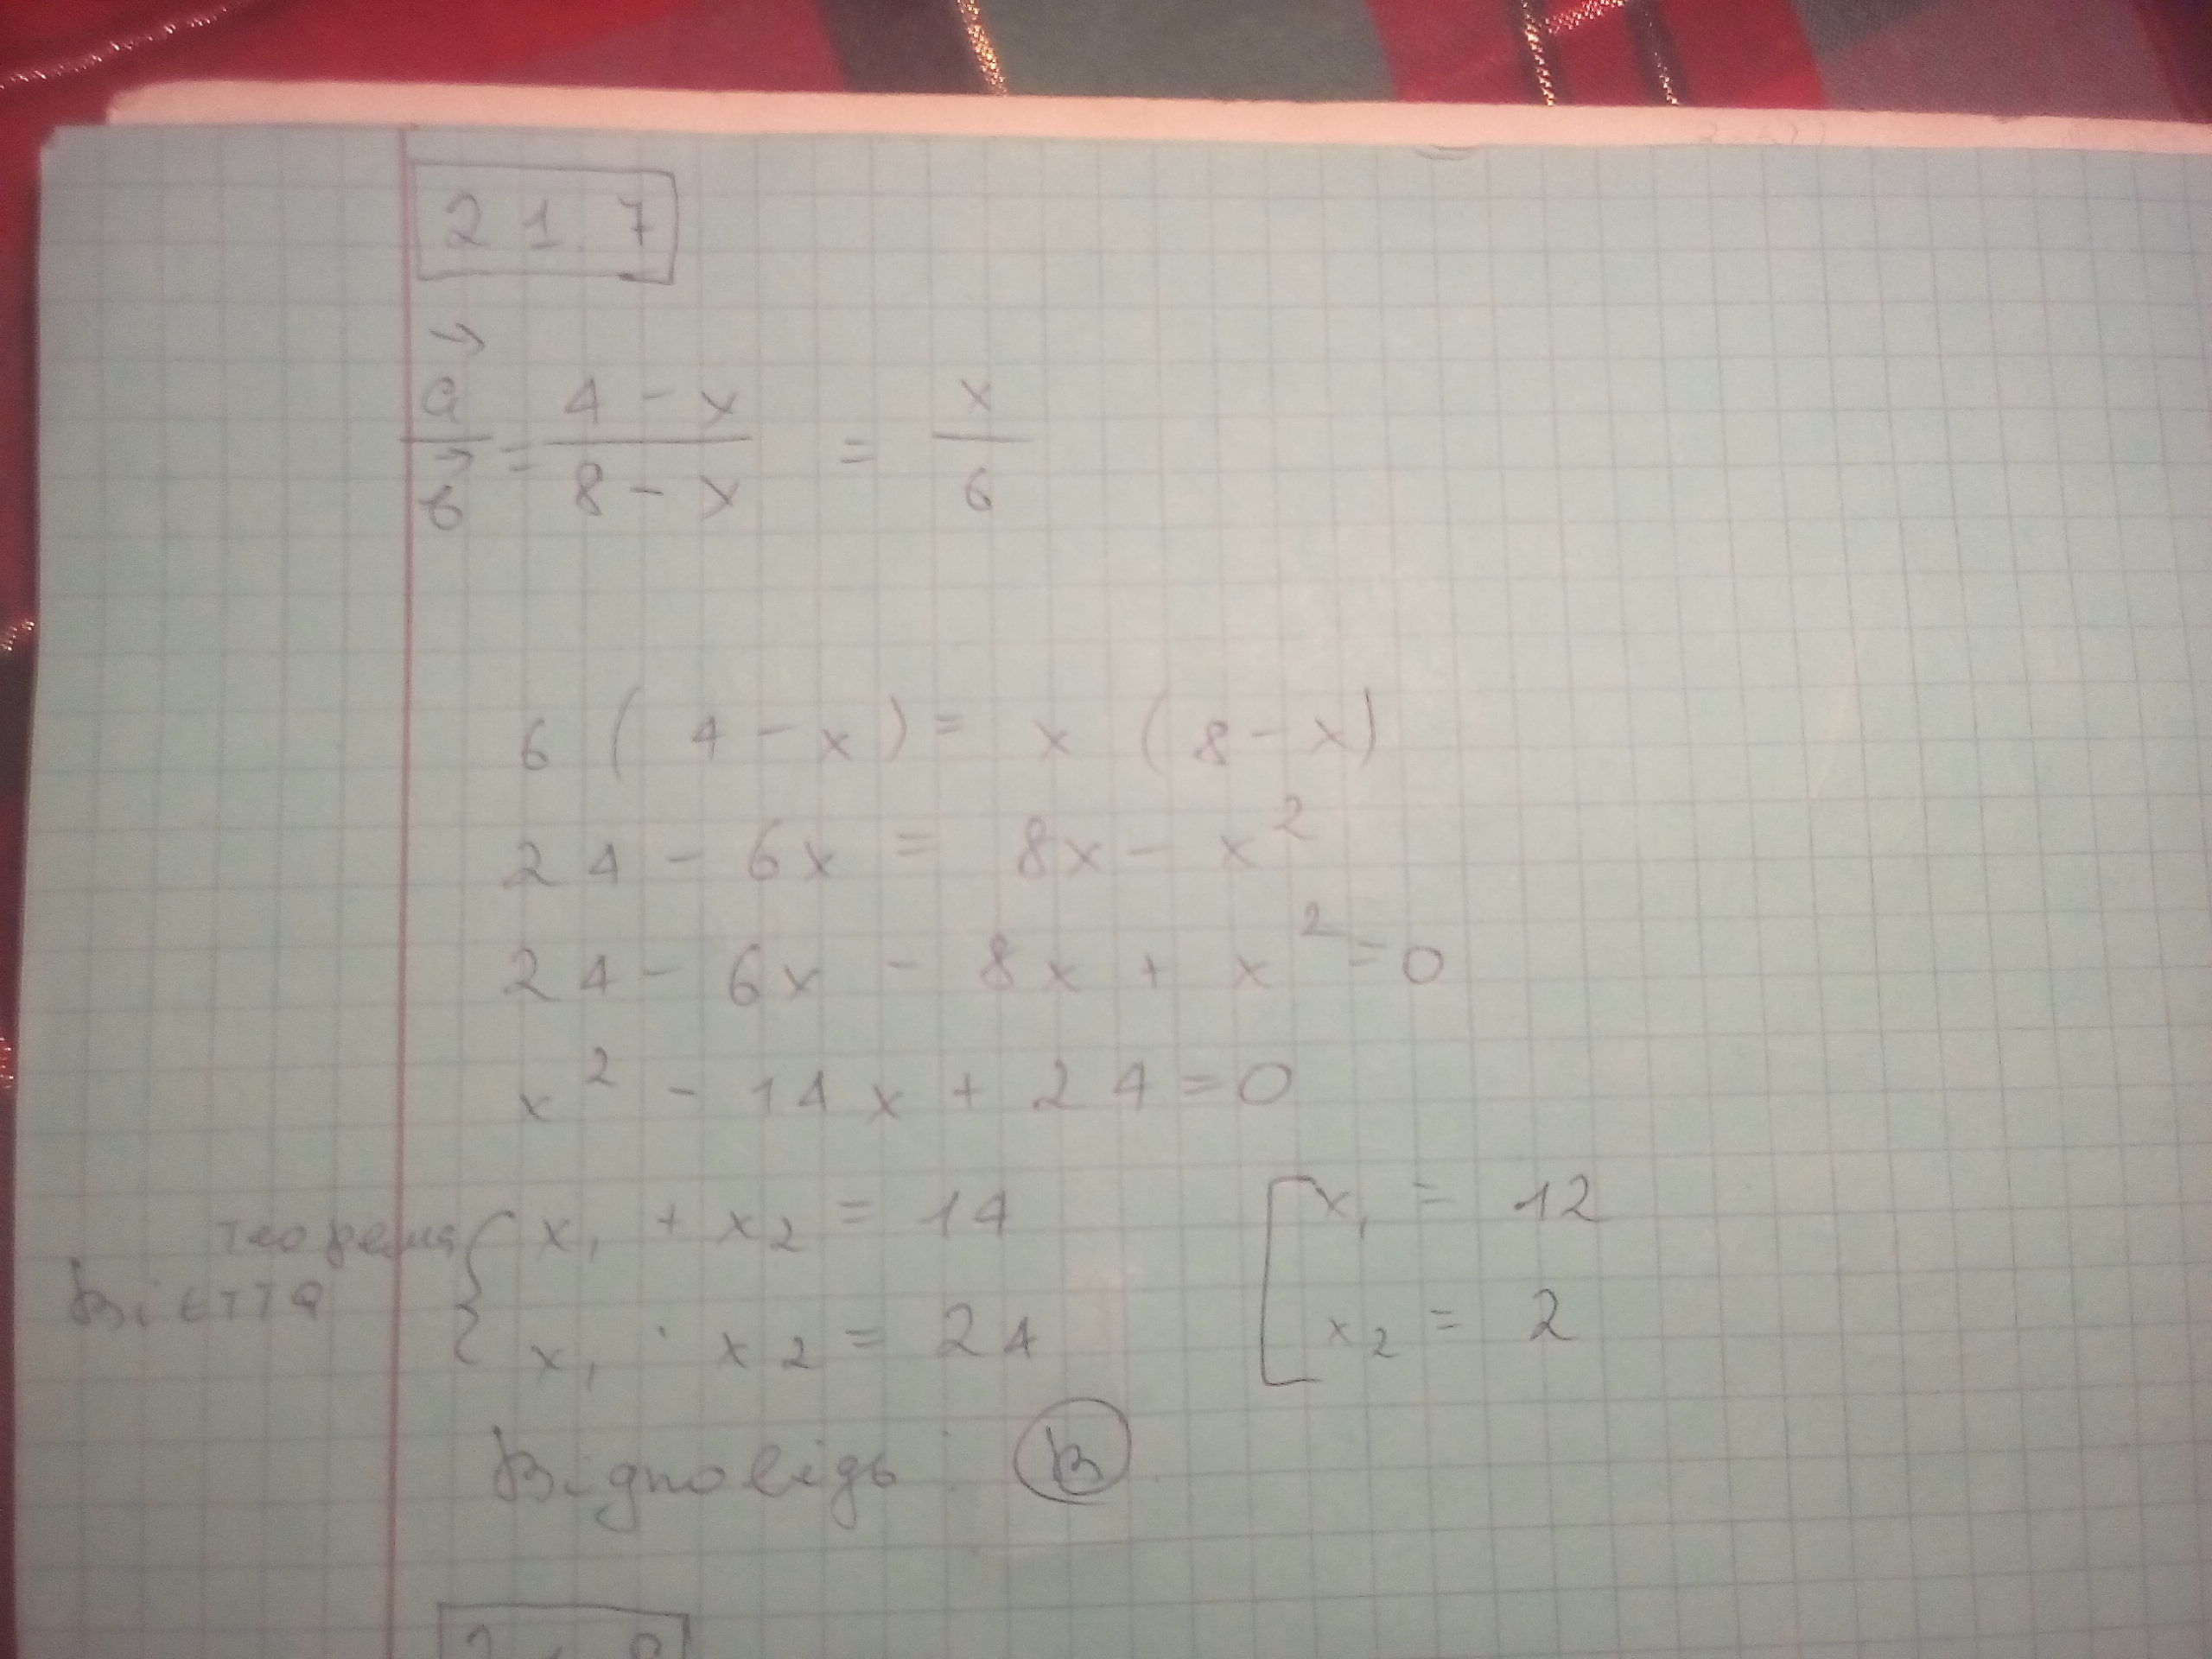 21.7
a⃗/b⃗ = (4 - x)/(8 - x) = x/6
6 (4 - x) = x (8 - x)
24 - 6x = 8x - x²
24 - 6x - 8x + x² = 0
x² - 14x + 24 = 0
теорема Вієтта { x₁ + x₂ = 14
x₁ · x₂ = 24
[ x₁ = 12
x₂ = 2
Відповідь: В